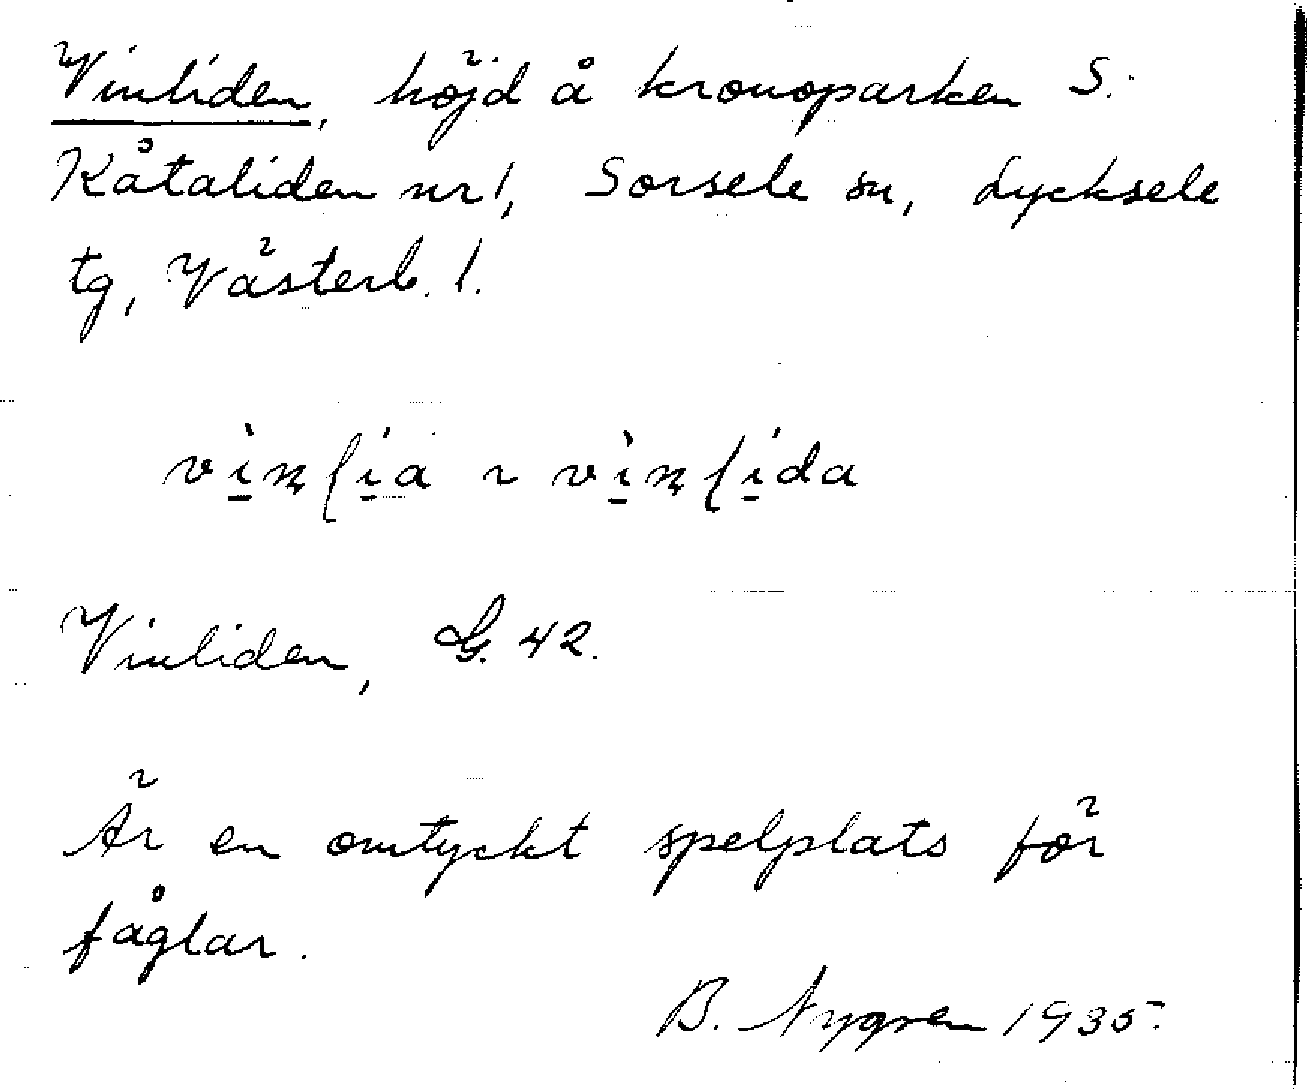 Vinliden, höjd å kronoparken S.
Kåtaliden nr 1, Sorsele sn, Lycksele
tg, Västerb. l.
Vinliden, G. 42.
Är en omtyckt spelplats för
fåglar.
B. Nygren 1935.